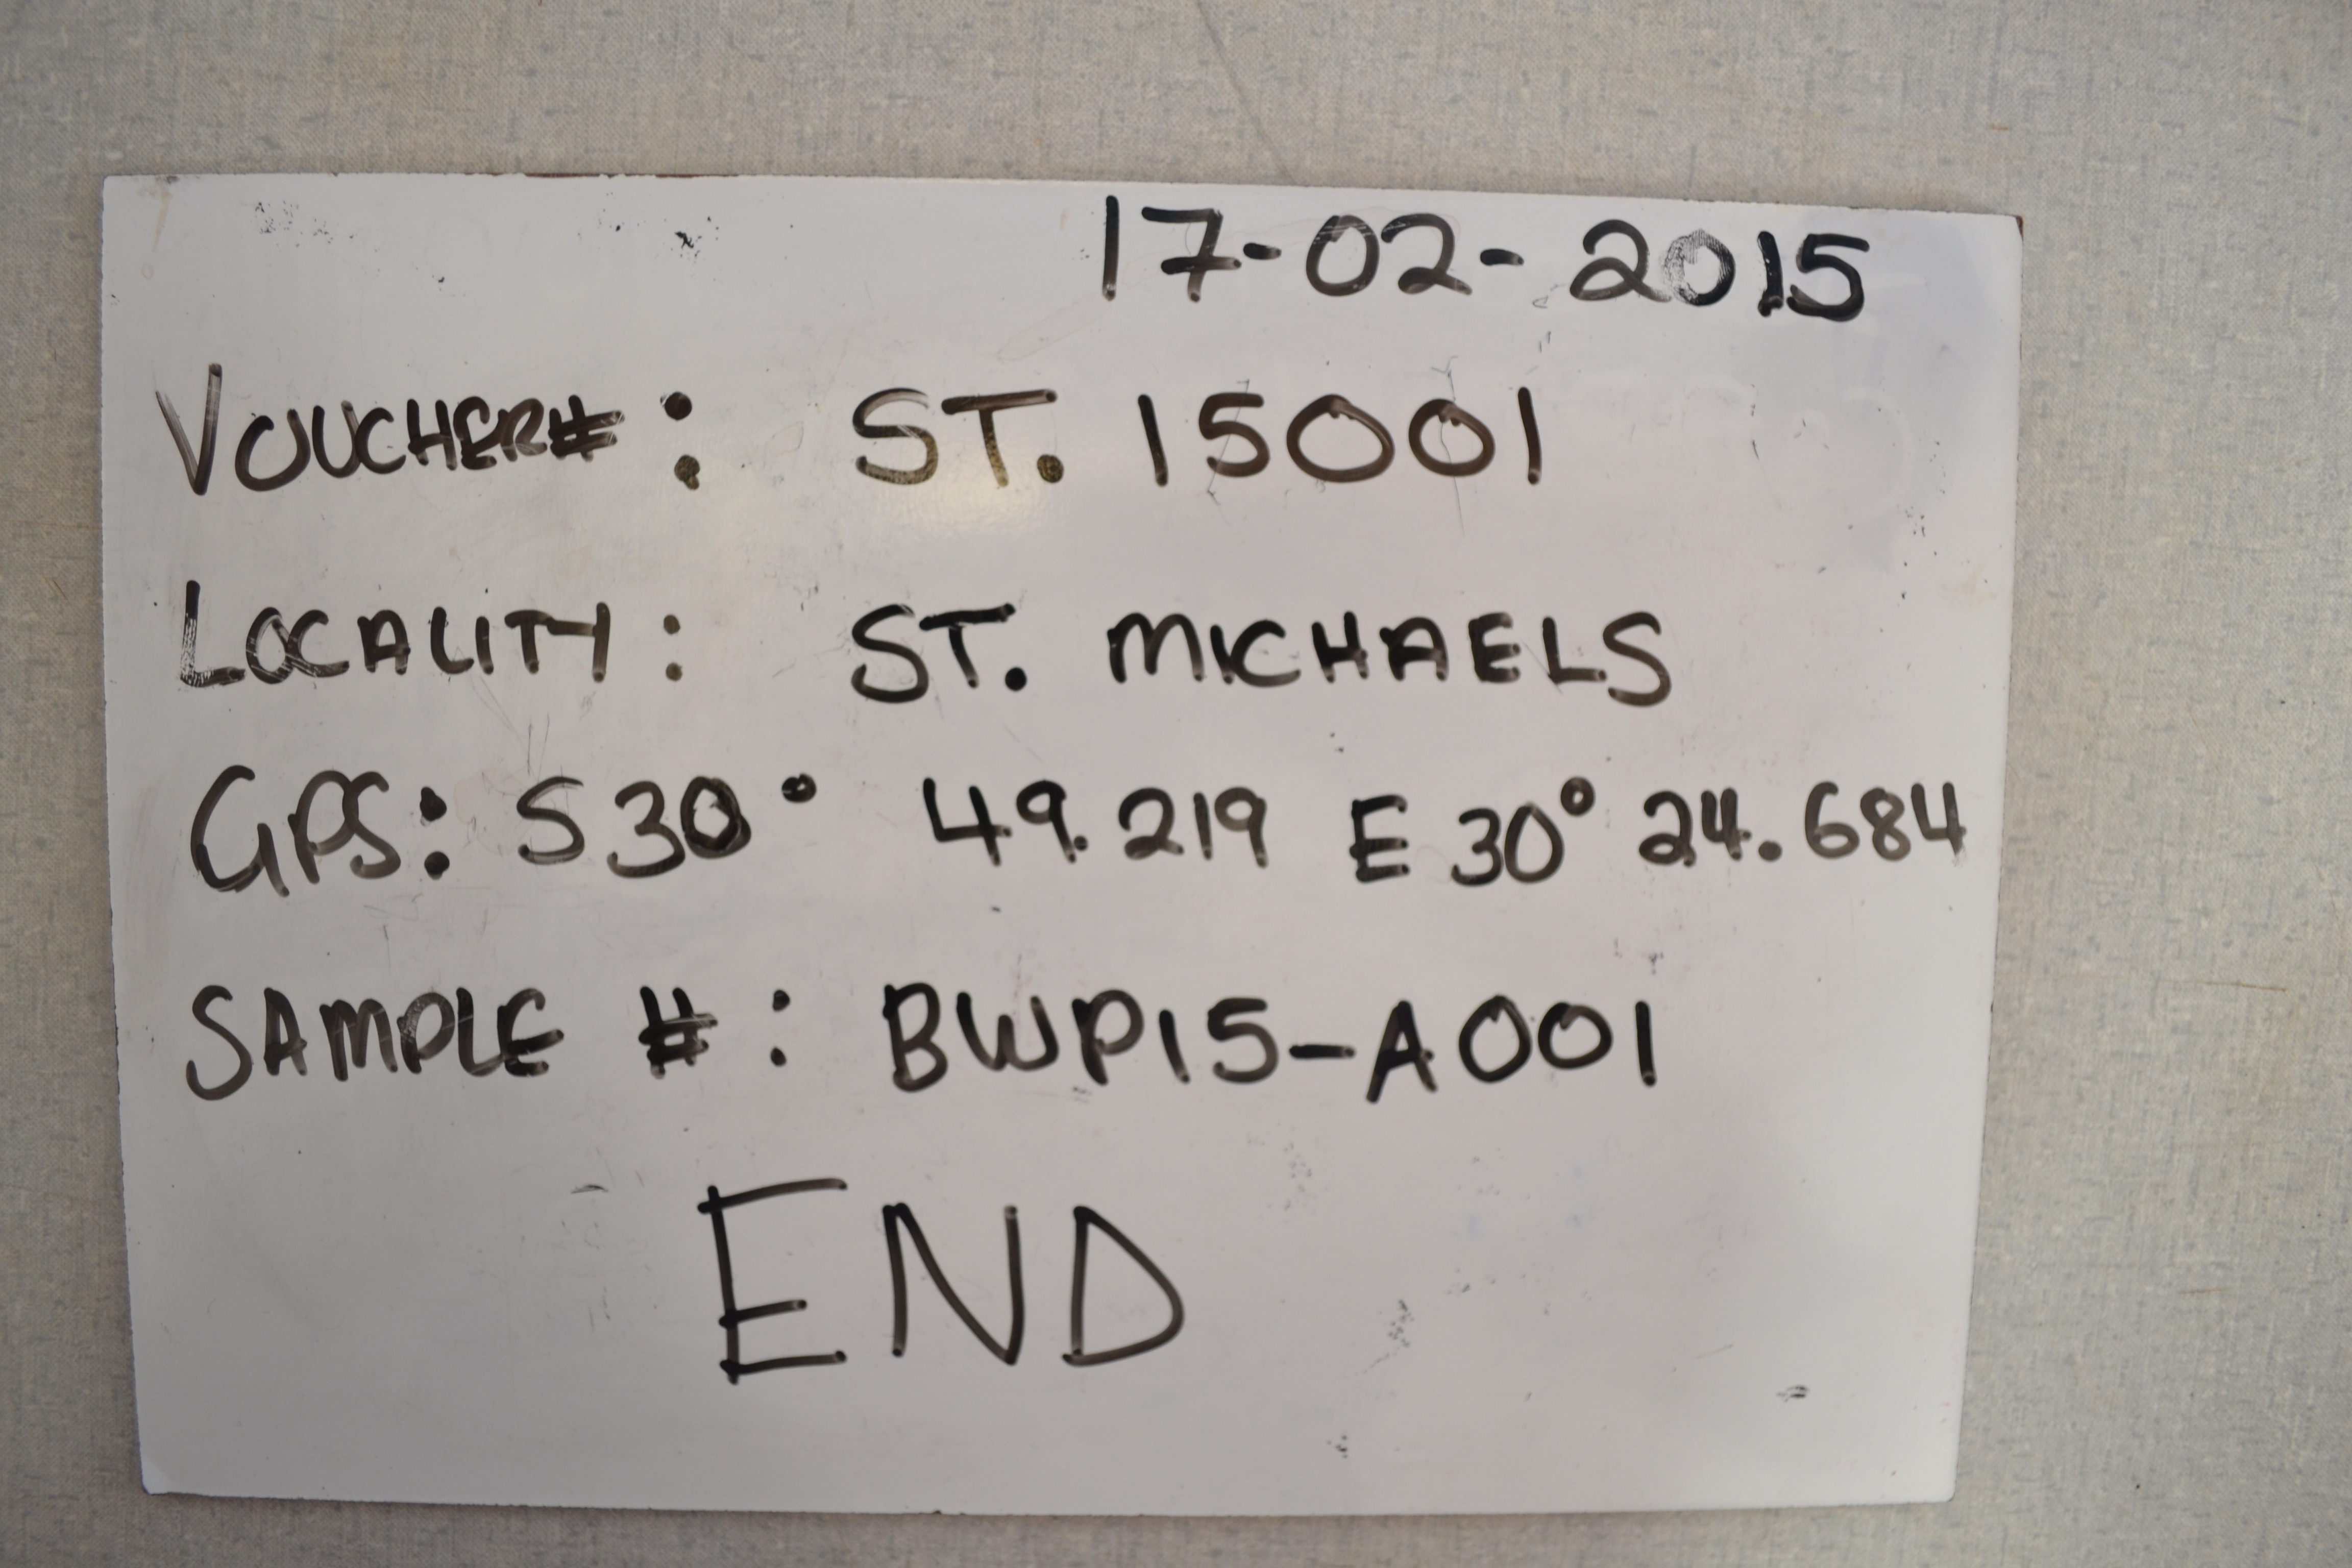 17-02-2015
VOUCHER#: ST. 15001
LOCALITY: ST. MICHAELS
GPS: S30° 49.219 E 30° 24.684
SAMPLE #: BWP15-A001
END